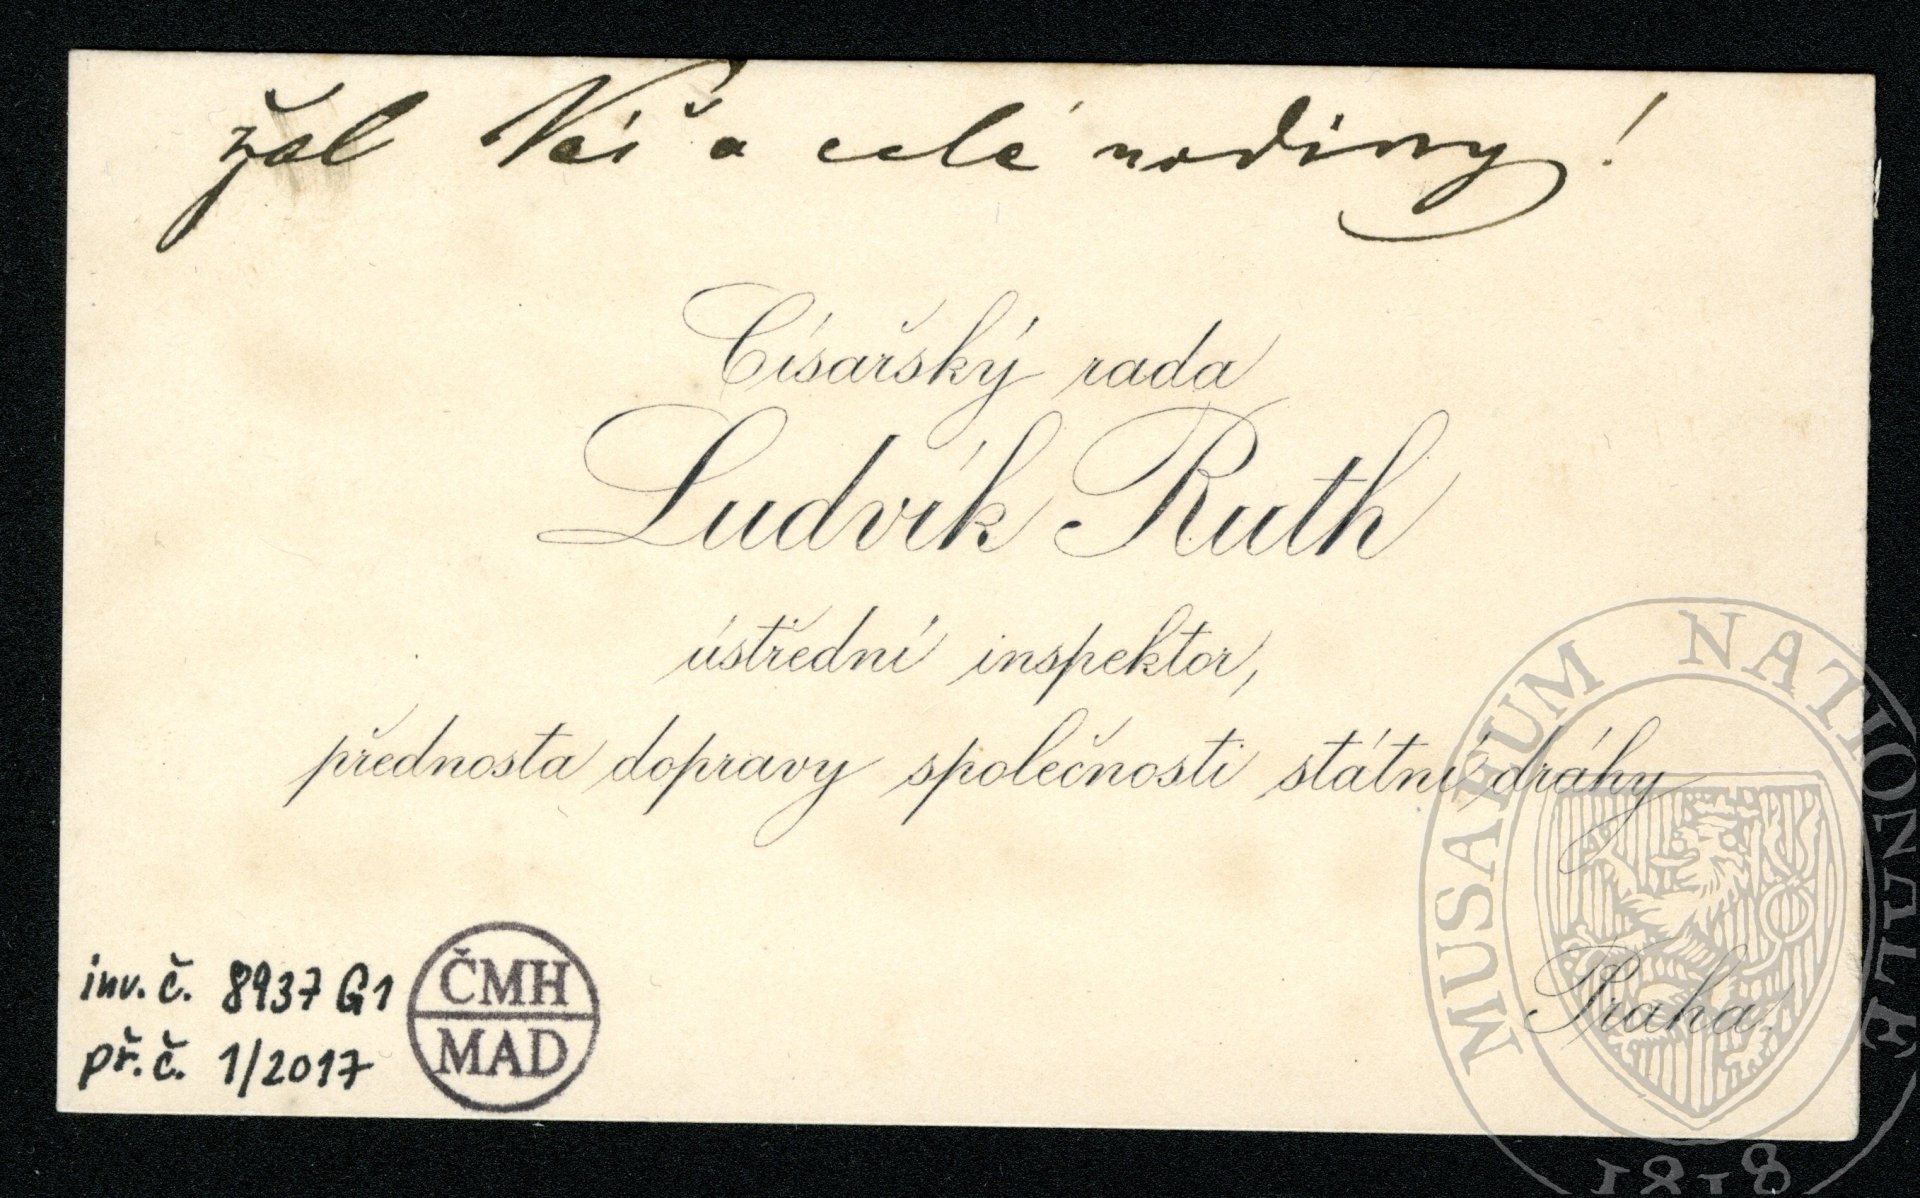 žal Váš a celé rodiny!
Císařský rada
Ludvík Ruth
ústřední inspektor,
přednosta dopravy společnosti státní dráhy
Praha.
inv. č. 8937 G1
př. č. 1/2017
ČMH
MAD
MUSAEUM NATIONALE
1818